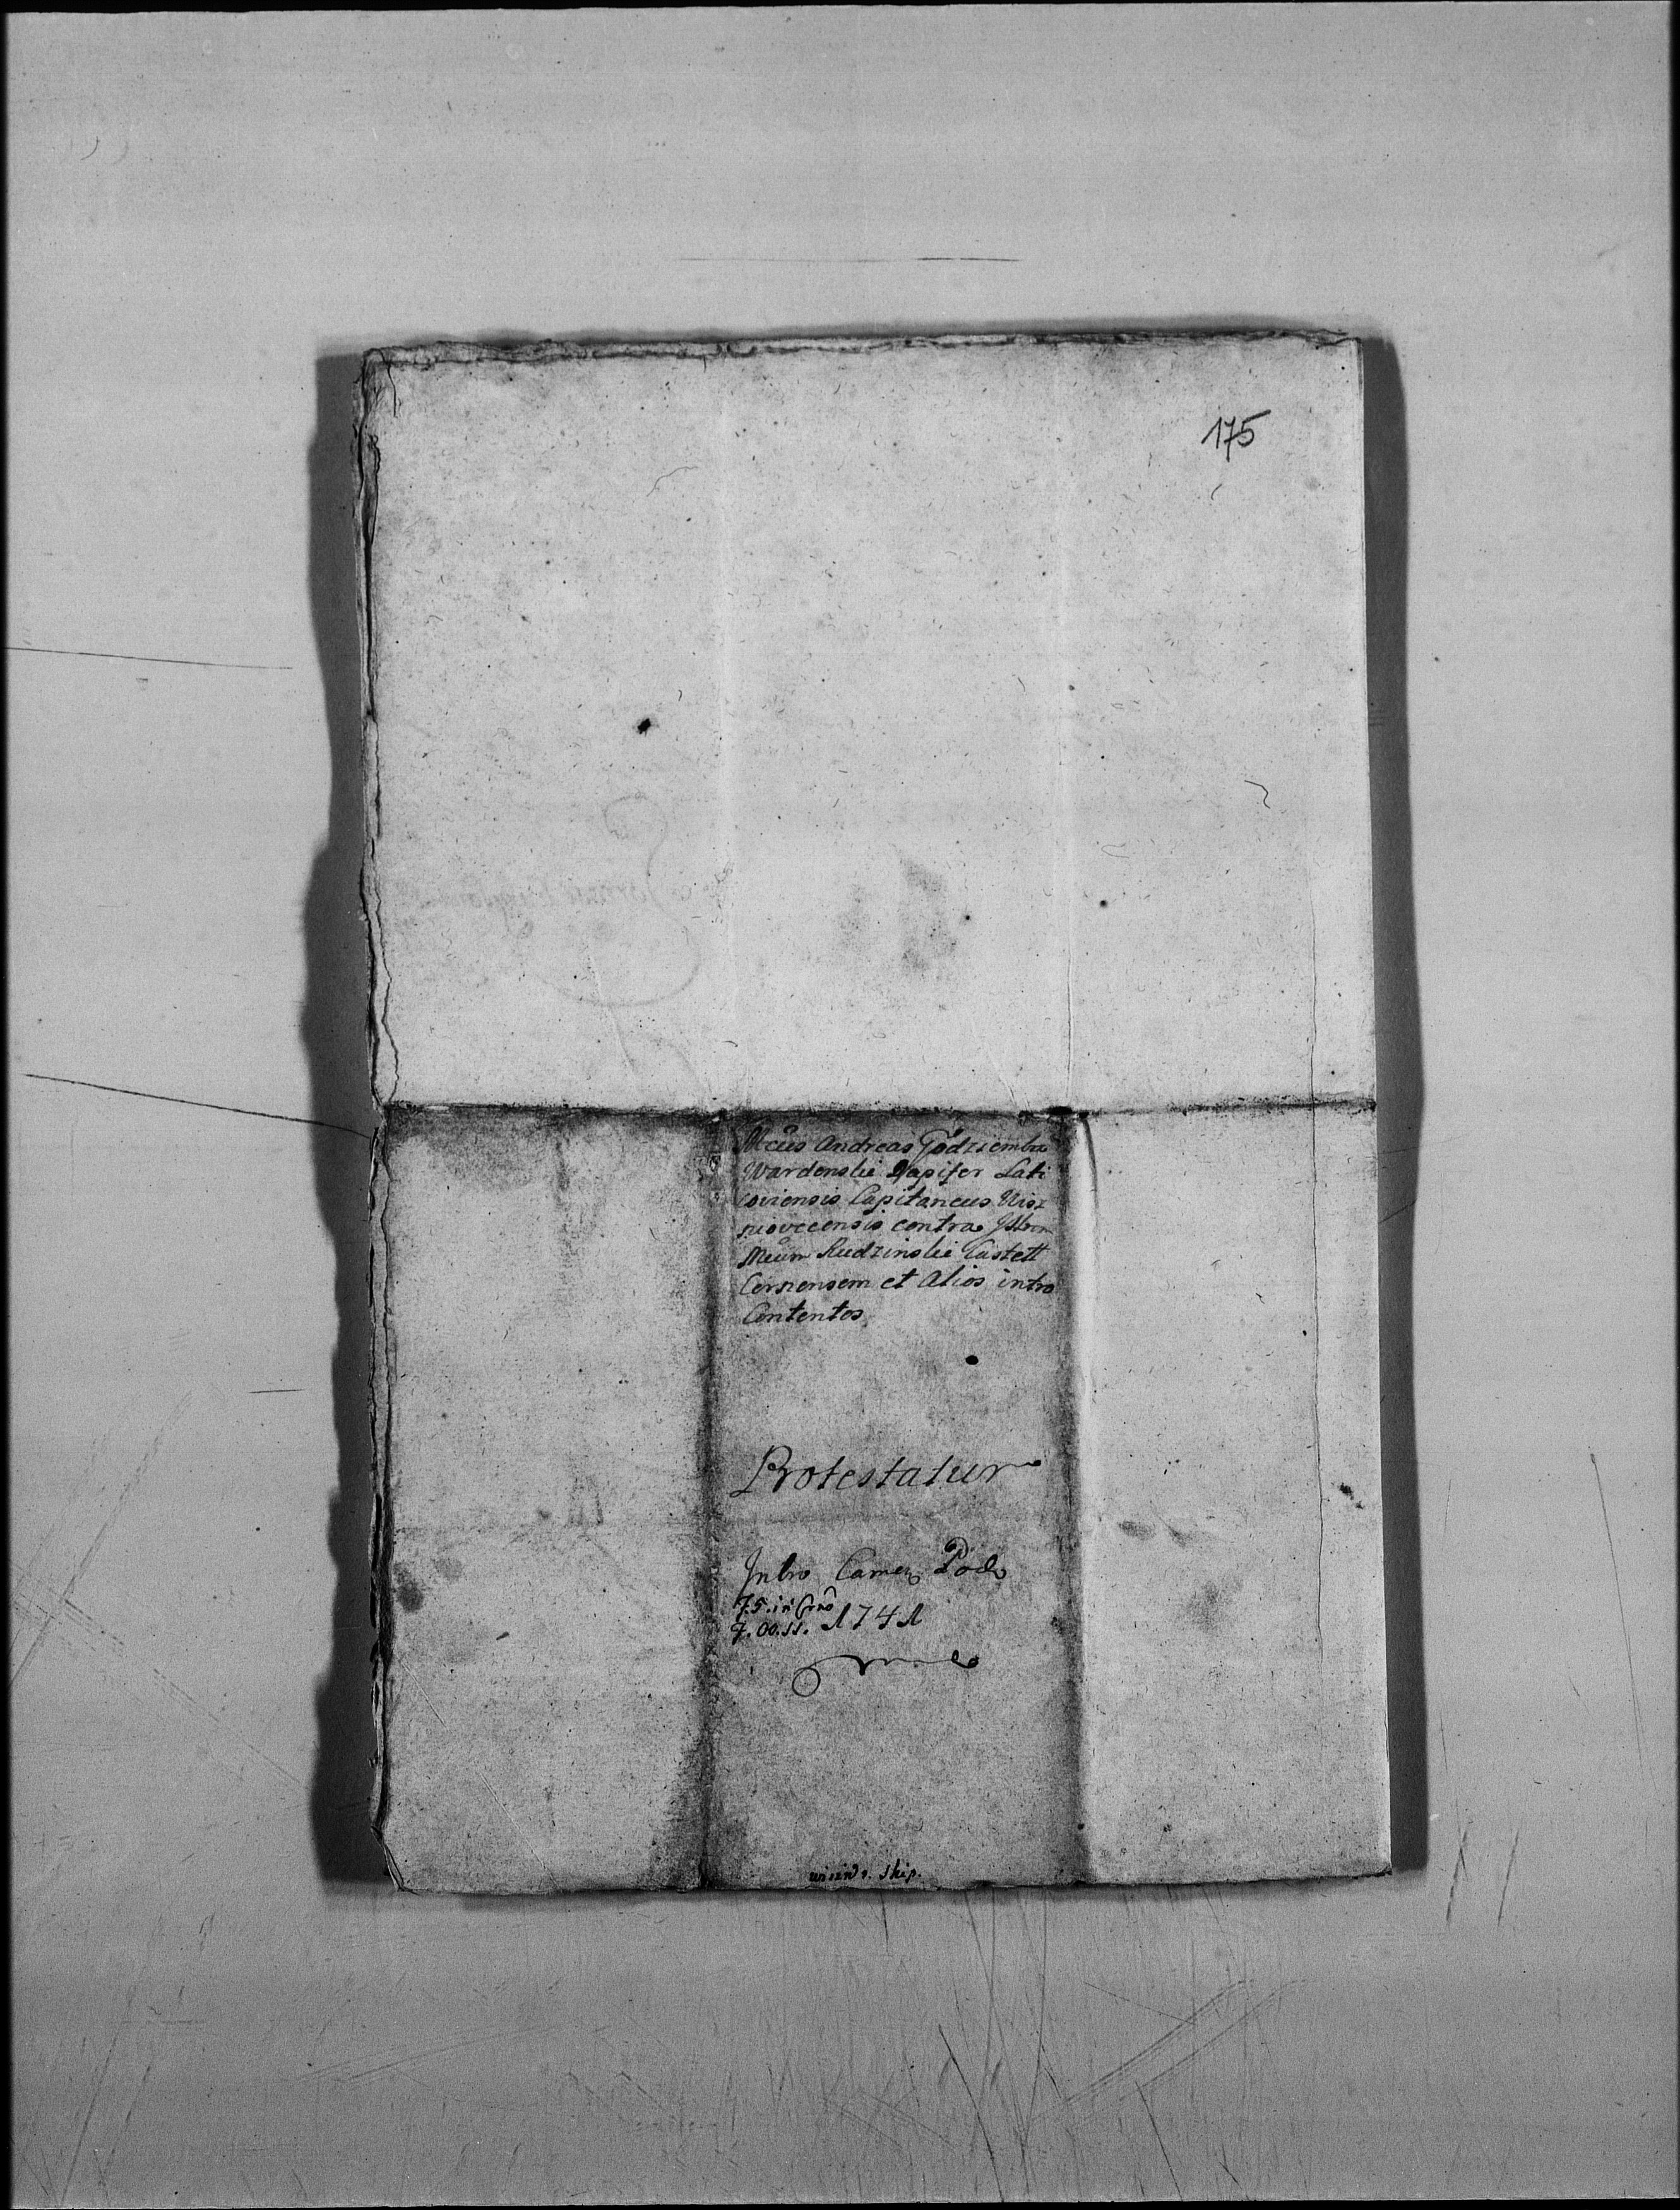 175
Mcus Andreas Godziemba
Wardenski Dapifer Lati
coviensis Capitaneus Uisz
niovecensis contra Illrm
Mcum Rudzinski Castell
Cersnensem et Alios intro
Contentos
Protestatur
Intro Camen Podo
1741